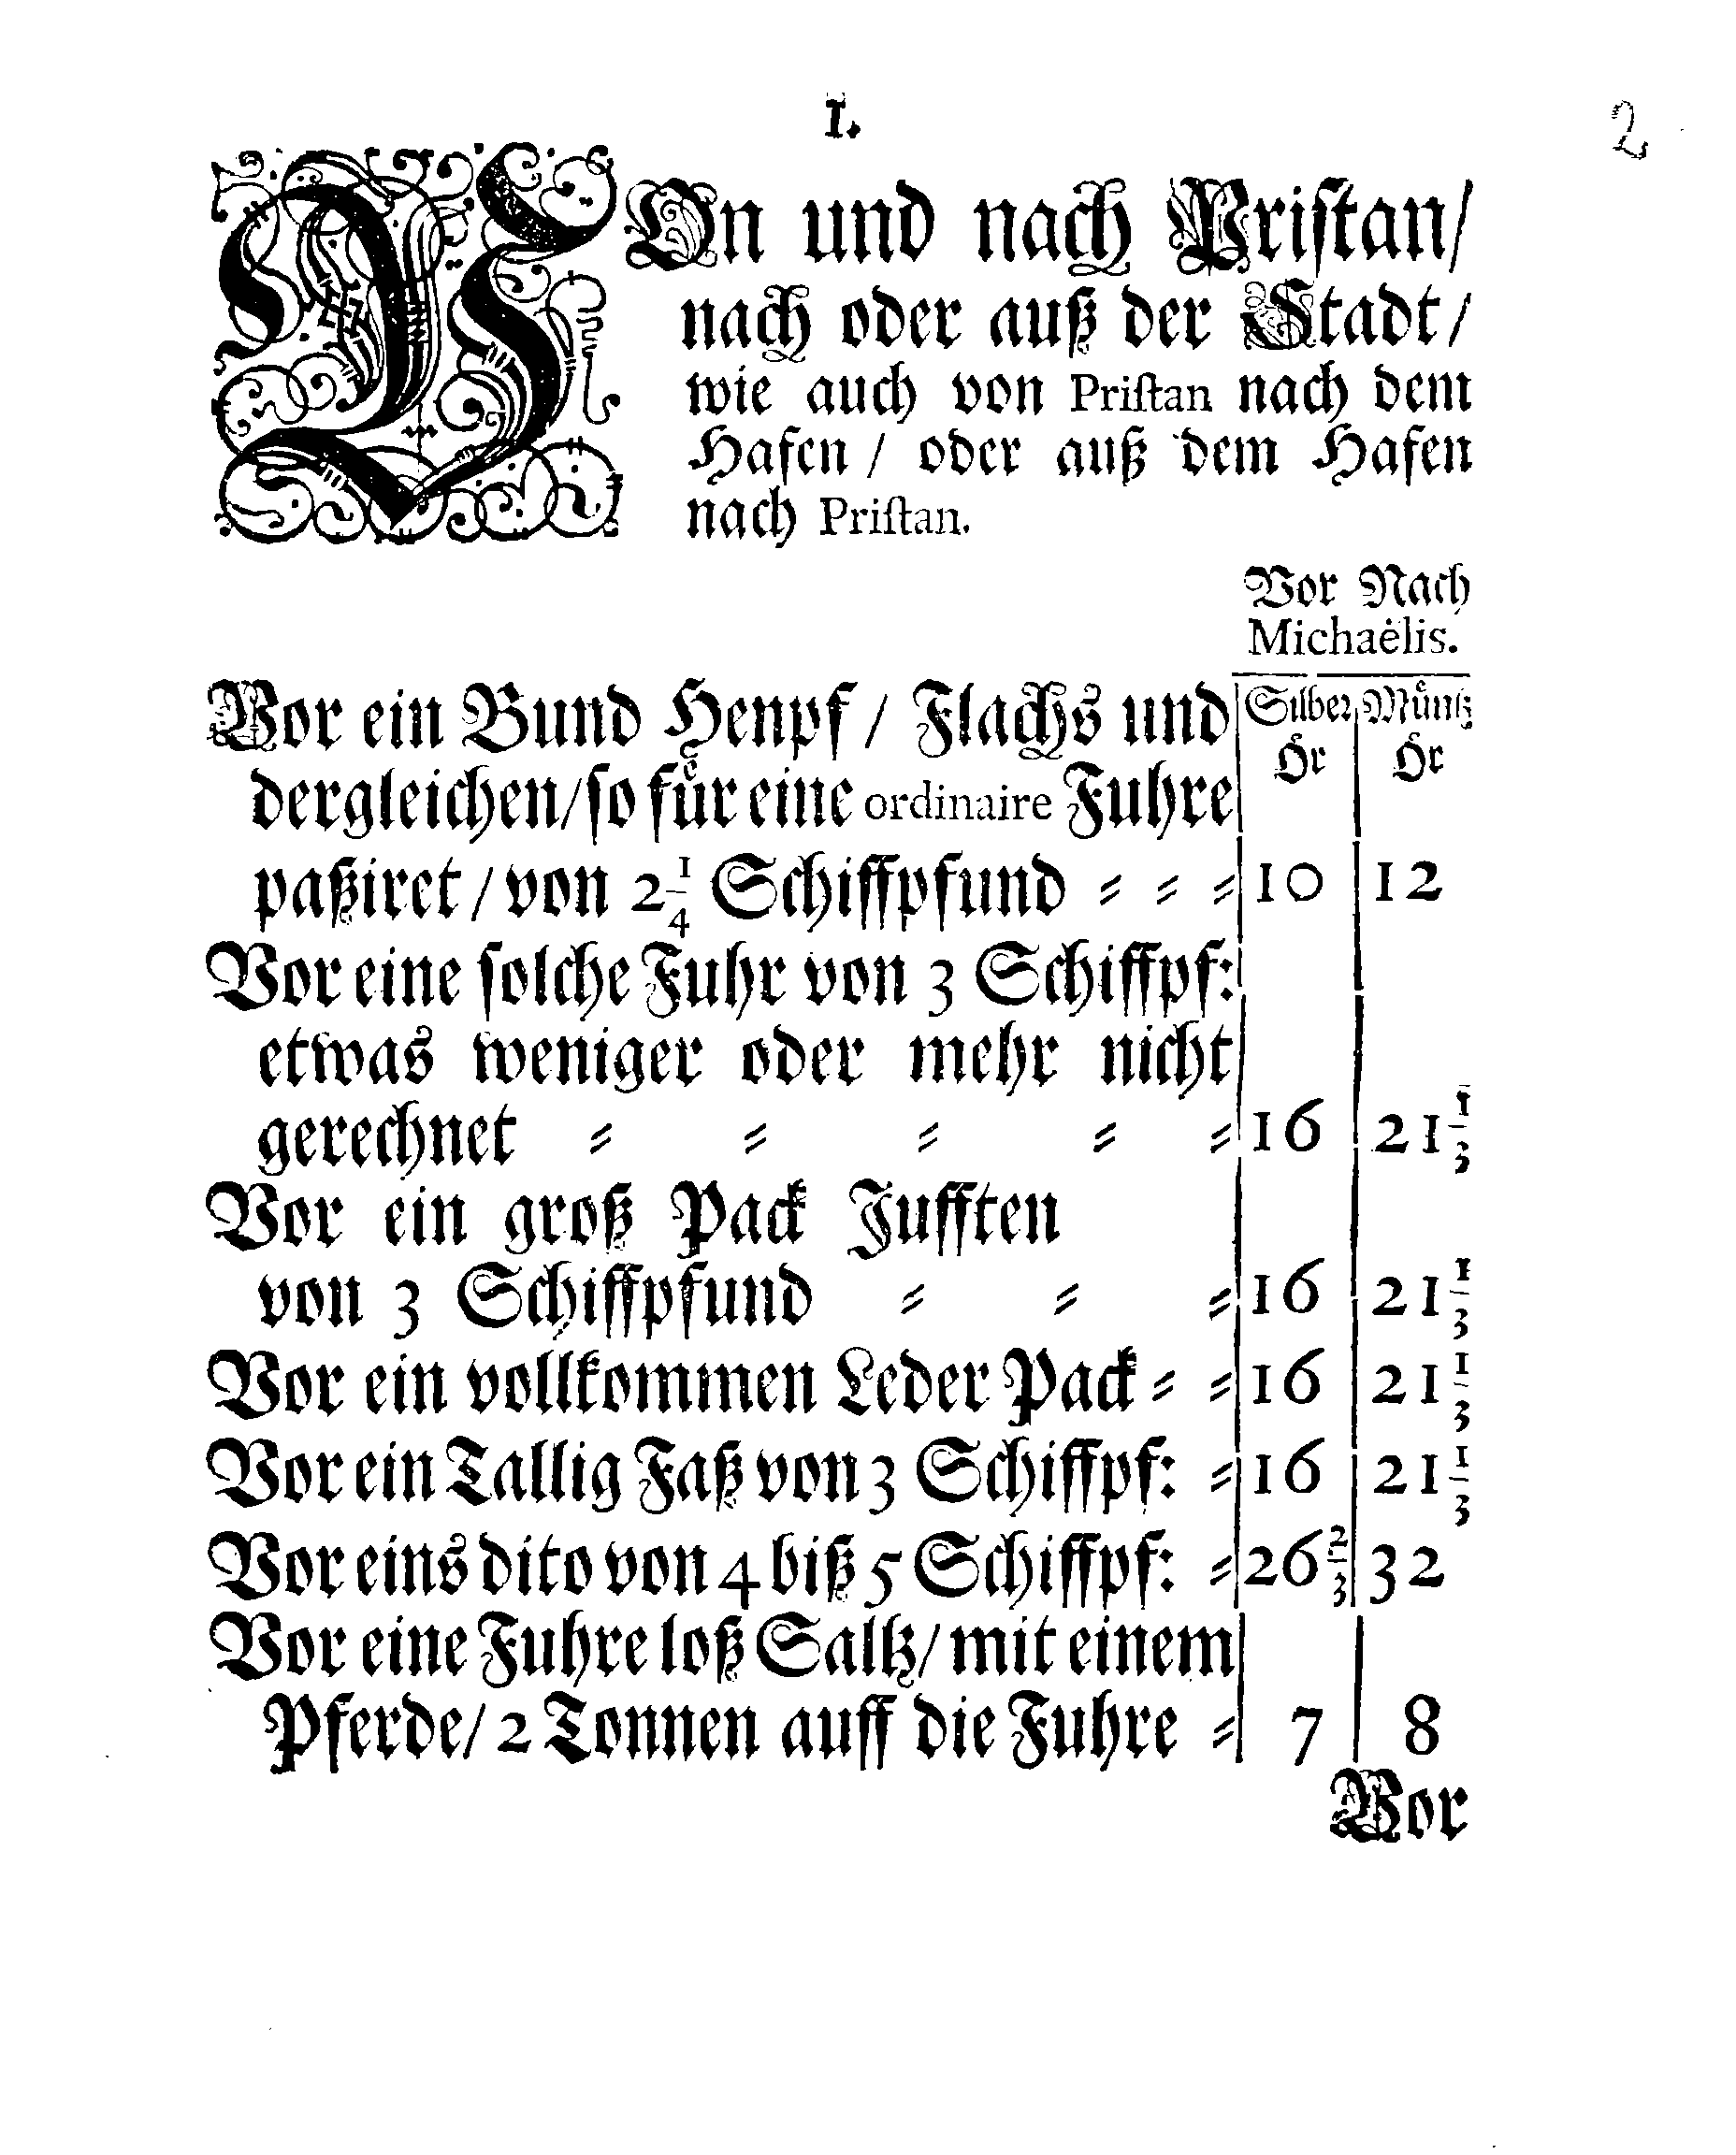 I.
2
VOn und nach Pristan/
nach oder auß der Stadt/
wie auch von Pristan nach dem
Hafen / oder auß dem Hafen
nach Pristan.
Vor Nach
Michaëlis.
Vor ein Bund Henpf / Flachs und Silber Müntz
Ör Ör
dergleichen/so für eine ordinaire Fuhre
paßiret / von 2 1/4 Schiffpfund = = = 10 12
Vor eine solche Fuhr von 3 Schiffpf:
etwas weniger oder mehr nicht
gerechnet = = = = = 16 21 1/3
Vor ein groß Pack Jufften
von 3 Schiffpfund = = = 16 21 1/3
Vor ein vollkommen Leder Pack = = 16 21 1/3
Vor ein Tallig Faß von 3 Schiffpf: = 16 21 1/3
Vor eins dito von 4 biß 5 Schiffpf: = 26 2/3 32
Vor eine Fuhre loß Saltz/ mit einem
Pferde/ 2 Tonnen auff die Fuhre = 7 8
Vor